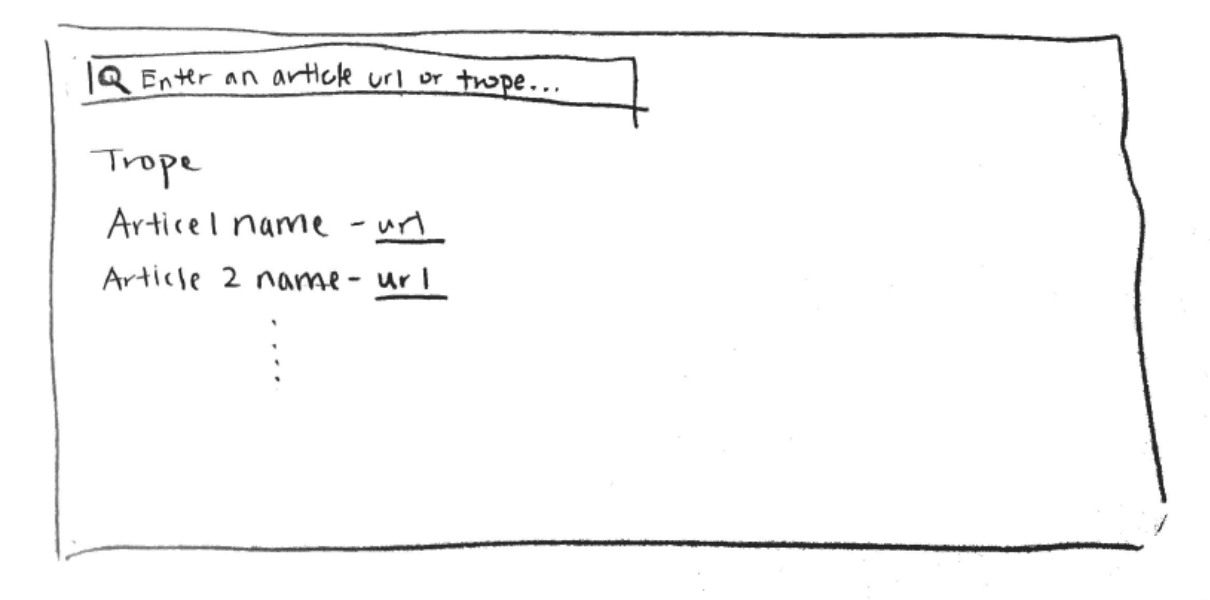 Enter an article url or trope...
Trope
Articel name - url
Article 2 name - url